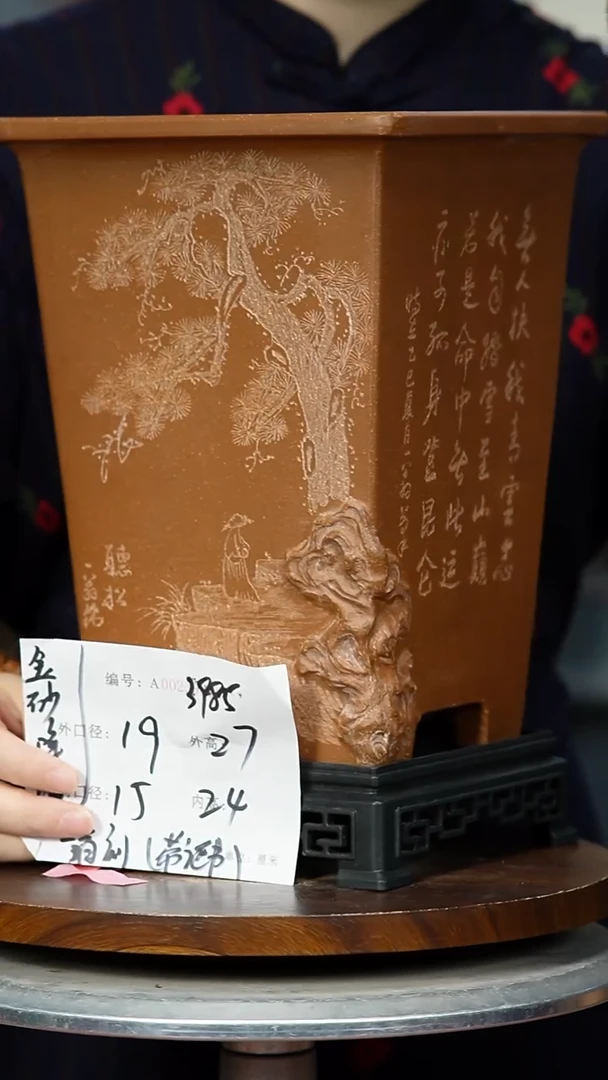 无人扶我青云志
我自踏雪至山巅
若是命中无此运
亦可孤身登昆仑
时在乙巳夏月一翁
聽松
一翁
金砂
编号：A002 3985
外口径：19 外高 27
口径：15 内 24
翁刻（带证书）
厘米